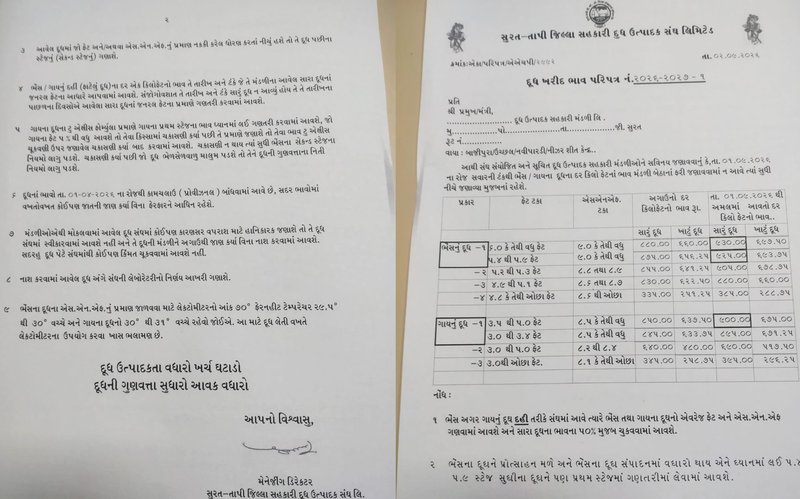 ૨
૩ આવેલ દૂધમાં જો ફેટ અને/અથવા એસ.એન.એફ.નું પ્રમાણ નક્કી કરેલ ધોરણ કરતાં નીચું હશે તો તે દૂધ પછીના
સ્ટેજનું (સેકન્ડ સ્ટેજનું) ગણાશે.
૪ ભેંસ / ગાયનું દહીં (ફાટેલું દૂધ)ના દર એક કિલોફેટનો ભાવ તે તારીખ અને ટંકે જે તે મંડળીના આવેલ સારા દૂધનાં
જનરલ ફેટના આધારે આપવામાં આવશે. સંજોગોવશાત તે તારીખ અને ટંકે સારું દૂધ ન આવ્યું હોય તે તે તારીખના
પાછળના દિવસોએ આવેલા સારા દૂધનાં જનરલ ફેટના પ્રમાણે ગણતરી કરવામાં આવશે.
૫ ગાયના દૂધના ટુ એક્ષીસ ફોર્મ્યુલા પ્રમાણે ગાયના પ્રથમ સ્ટેજના ભાવ ધ્યાનમાં લઈ ગણતરી કરવામાં આવશે, જો
ગાયના ફેટ ૫ % થી વધુ આવશે તો તેવા કિસ્સામાં ચકાસણી કર્યા પછી તે પ્રમાણે જણાશે તો તેવા ભાવ ટુ એક્ષીસ
ચૂકવણી ઉપર જણાવેલ ચકાસણી કર્યા બાદ કરવામાં આવશે. ચકાસણી ન થાય ત્યાં સુધી ભેંસના સેકન્ડ સ્ટેજના
નિયમો લાગુ પડશે. ચકાસણી કર્યા પછી જો દૂધ ભેળસેળવાળુ માલુમ પડશે તો તેને દૂધની ગુણવત્તાના નિતી
નિયમો લાગુ પડશે.
૬ દૂધનાં ભાવો તા. ૦૧-૦૪-૨૦૨૬ ના રોજથી કામચલાઉ ( પ્રોવીઝનલ ) બાંધવામાં આવે છે, સદર ભાવોમાં
વખતોવખત કોઈપણ જાતની જાણ કર્યા વિના ફેરફારને આધિન રહેશે.
૭ મંડળીઓએથી મોકલવામાં આવેલ દૂધ સંઘમાં કોઈપણ કારણસર વપરાશ માટે હાનિકારક જણાશે તો તે દૂધ
સંઘમાં સ્વીકારવામાં આવશે નહીં અને તે દૂધની મંડળીને અગાઉથી જાણ કર્યા વિના નાશ કરવામાં આવશે.
સદરહુ દૂધ પેટે સંઘમાંથી કોઈપણ કિંમત ચૂકવામાં આવશે નહી.
૮ નાશ કરવામાં આવેલ દૂધ અંગે સંઘની લેબોરેટરીનો નિર્ણય આખરી ગણાશે.
૯ ભેંસના દૂધના એસ.એન.એફ.નું પ્રમાણ જાળવવા માટે લેક્ટોમીટરનો આંક ૭૦° ફેરનહીટ ટેમ્પરેચર ૨૯.૫°
થી ૩૦° વચ્ચે અને ગાયના દૂધનો ૩૦° થી ૩૧° વચ્ચે રહેવો જોઈએ. આ માટે દૂધ લેતી વખતે
લેક્ટોમીટરના ઉપયોગ કરવા ખાસ ભલામણ છે.
દૂધ ઉત્પાદકતા વધારો ખર્ચ ઘટાડો
દૂધની ગુણવત્તા સુધારો આવક વધારો
આપનો વિશ્વાસુ,
મેનેજીંગ ડિરેક્ટર
સુરત-તાપી જિલ્લા સહકારી દૂધ ઉત્પાદક સંઘ લિ.
સુરત-તાપી જિલ્લા સહકારી દૂધ ઉત્પાદક સંઘ લિમિટેડ
ક્રમાંક:એકા/પરિપત્ર/એએમપી/૨૯૯૨
દૂધ ખરીદ ભાવ પરિપત્ર નં.૨૦૨૬-૨૦૨૭ - ૧
પ્રતિ
શ્રી પ્રમુખ/મંત્રી,
.................... દૂધ ઉત્પાદક સહકારી મંડળી લિ .
મુ..............પો................તા..............જી. સુરત
રૂટ નં..............
વાયા : બાજીપુરા/ઉચ્છલ/નવીપારડી/નીઝર શીત કેન્દ્ર..
આથી સંઘ સંયોજિત અને સૂચિત દૂધ ઉત્પાદક સહકારી મંડળીઓને સવિનય જણાવવાનું કે,તા. ૦૧.૦૪.૨૦૨૬
ના રોજ સવારની ટંકથી ભેંસ / ગાયના દૂધના દર કિલો ફેટનાં ભાવ મંડળી બેઠાનાં ફરી જણાવવામાં ન આવે ત્યાં સુધી
નીચે જણાવ્યા મુજબનાં રહેશે.
પ્રકાર ફેટ ટકા એસએનએફ ટકા અગાઉનો દર કિલોફેટનો ભાવ રૂા. તા. ૦૧.૦૪.૨૦૨૬ થી અમલમાં આવતો દર કિલો ફેટનો ભાવ..
સારું દૂધ ખાટું દૂધ સારું દૂધ ખાટું દૂધ
ભેંસનું દૂધ -૧ ૬.૦ કે તેથી વધુ ફેટ ૯.૦ કે તેથી વધુ ૮૮૦.૦૦ ૬૬૦.૦૦ ૯૩૦.૦૦ ૬૯૭.૫૦
૫.૪ થી ૫.૯ ફેટ ૯.૦ કે તેથી વધુ ૮૭૫.૦૦ ૬૫૬.૨૫ ૯૨૫.૦૦ ૬૯૩.૭૫
-૨ ૫.૨ થી ૫.૩ ફેટ ૮.૮ તથા ૮.૯ ૮૫૫.૦૦ ૬૪૧.૨૫ ૯૦૫.૦૦ ૬૭૮.૭૫
-૩ ૪.૯ થી ૫.૧ ફેટ ૮.૬ તથા ૮.૭ ૮૩૦.૦૦ ૬૨૨.૫૦ ૮૮૦.૦૦ ૬૬૦.૦૦
-૪ ૪.૮ કે તેથી ઓછા ફેટ ૮.૫ થી ઓછા ૩૩૫.૦૦ ૨૫૧.૨૫ ૩૮૫.૦૦ ૨૮૮.૭૫
ગાયનું દૂધ -૧ ૩.૫ થી ૫.૦ ફેટ ૮.૫ કે તેથી વધુ ૮૫૦.૦૦ ૬૩૭.૫૦ ૯૦૦.૦૦ ૬૭૫.૦૦
૩.૦ થી ૩.૪ ફેટ ૮.૫ કે તેથી વધુ ૮૪૫.૦૦ ૬૩૩.૭૫ ૮૯૫.૦૦ ૬૭૧.૨૫
-૨ ૩.૦ થી ૫.૦ ફેટ ૮.૨ થી ૮.૪ ૬૪૦.૦૦ ૪૮૦.૦૦ ૬૯૦.૦૦ ૫૧૭.૫૦
-૩ ૩.૦થી ઓછા ફેટ. ૮.૧ કે તેથી ઓછા ૩૪૫.૦૦ ૨૫૮.૭૫ ૩૯૫.૦૦ ૨૯૬.૨૫
નોંધ :
૧ ભેંસ અગર ગાયનું દૂધ દહીં તરીકે સંઘમાં આવે ત્યારે ભેંસ તથા ગાયના દૂધનો એવરેજ ફેટ અને એસ.એન.એફ
ગણવામાં આવશે અને સારા દૂધના ભાવના ૫૦% મુજબ ચુકવવામાં આવશે.
૨ ભેંસના દૂધને પ્રોત્સાહન મળે અને ભેંસના દૂધ સંપાદનમાં વધારો થાય એને ધ્યાનમાં લઈ ૫.૪
૫.૯ સ્ટેજ સુધીના દૂધને પણ પ્રથમ સ્ટેજમાં ગણતરીમાં લેવામાં આવશે.